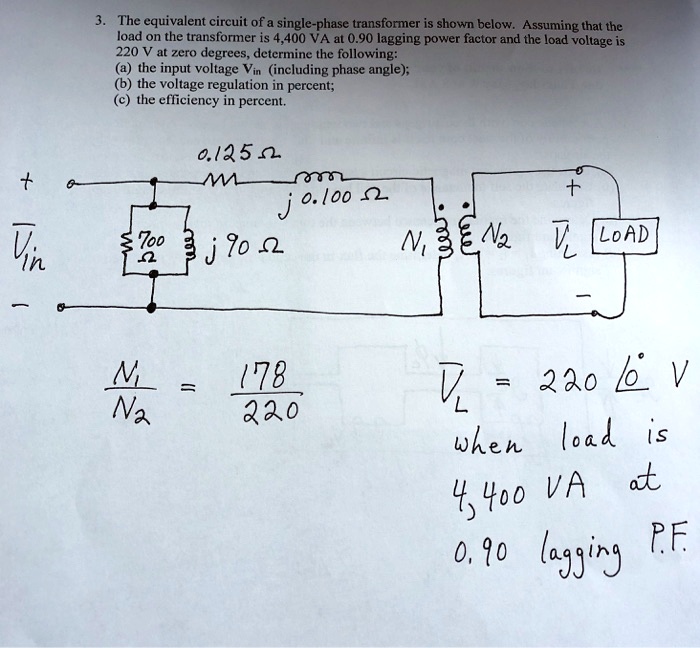 3. The equivalent circuit of a single-phase transformer is shown below. Assuming that the
load on the transformer is 4,400 VA at 0.90 lagging power factor and the load voltage is
220 V at zero degrees, determine the following:
(a) the input voltage Vin (including phase angle);
(b) the voltage regulation in percent;
(c) the efficiency in percent.
0.125 Ω
j 0.100 Ω
+
+
V̅in
700
Ω
j 90 Ω
N1
N2
V̅L
LOAD
−
−
N1/N2 = 178/220
V̅L = 220 ∠0° V
when load is
4,400 VA at
0.90 lagging P.F.